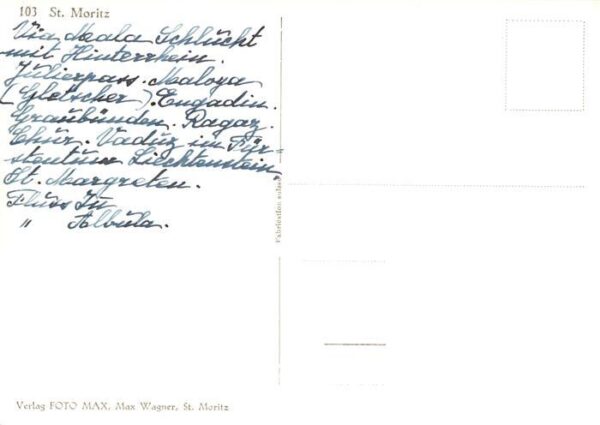 103 St. Moritz
Via Mala Schlucht
mit Hinterrhein.
Julierpass. Maloya
(Gletscher). Engadin.
Graubünden. Ragaz.
Chur. Vaduz im Für-
stentum Liechtenstein
St. Margreten.
Fluss Inn
" Albula.
Verlag FOTO MAX, Max Wagner, St. Moritz